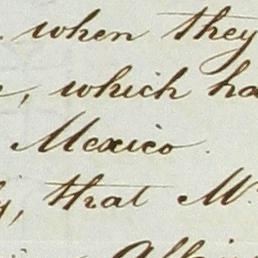 when they
, which ha
Mexico
, that M